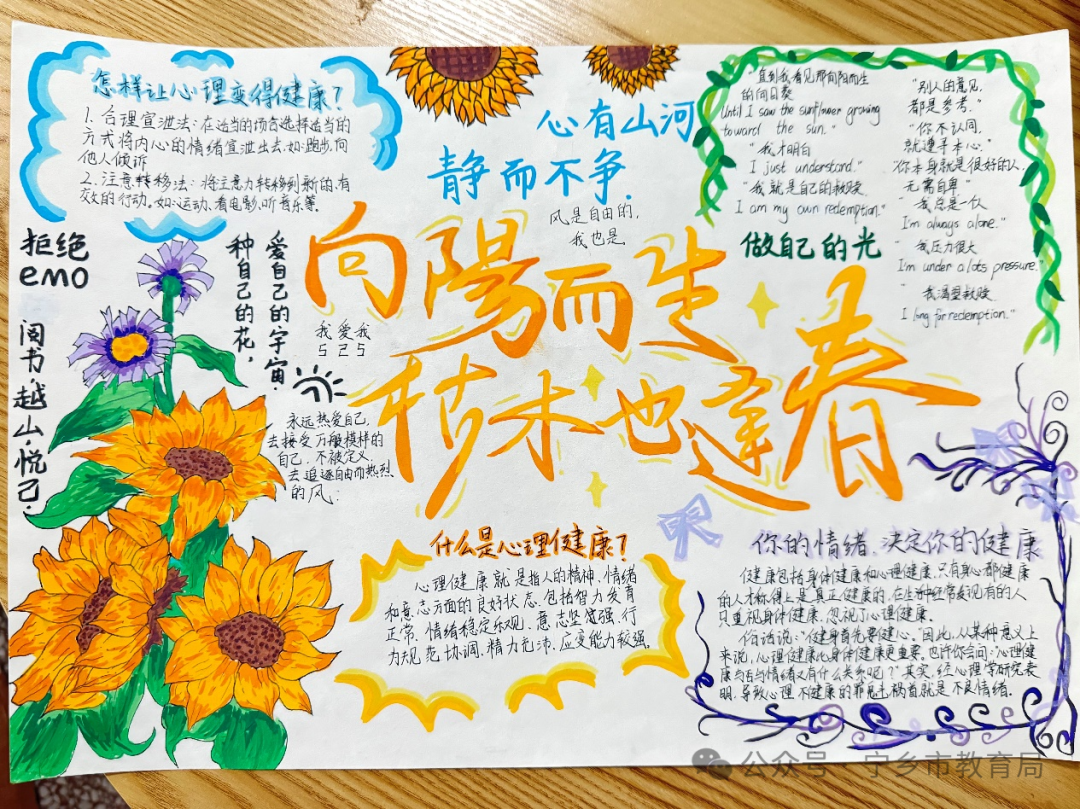 怎样让心理变得健康？
1. 合理宣泄法：在适当的场合选择适当的
方式将内心的情绪宣泄出去，如：跑步，向
他人倾诉
2. 注意转移法：将注意力转移到新的、有
效的行动。如：运动、看电影、听音乐等。
心有山河
静而不争.
风是自由的，
我也是
"直到我看见那向阳而生
的向日葵
Until I saw the sunflower growing
toward the sun."
"我才明白
I just understand."
"我就是自己的救赎
I am my own redemption."
"别人的意见，
都是参考."
"你不认同，
就遵寻本心."
"你本身就是很好的人，
无需自卑"
"我总是一个人
I'm always alone."
"我压力很大
I'm under a lots pressure."
"我渴望救赎
I long for redemption."
做自己的光
拒绝
emo
阅书越山，悦己.
种自己的花，
爱自己的宇宙.
我爱我
5 2 5
向陽而生
积木也逢春
永远热爱自己，
去接受万般模样的
自己，不被定义，
去追逐自由而热烈
的风；
什么是心理健康？
心理健康就是指人的精神、情绪
和意志方面的良好状态，包括智力发育
正常，情绪稳定乐观，意志坚强，行
为规范协调，精力充沛，应变能力较强。
你的情绪，决定你的健康
健康包括身体健康和心理健康，只有身心都健康
的人才称得上是真正健康的，在生活中经常发现有的人
只重视身体健康，忽视了心理健康。
俗话说：“健身首先要健心。”因此，从某种意义上
来说，心理健康比身体健康更重要。也许你会问：“心理健
康与否与情绪又有什么关系呢？”其实，经心理学研究表
明，导致心理不健康的罪魁祸首就是不良情绪。
公众号 宁乡市教育局